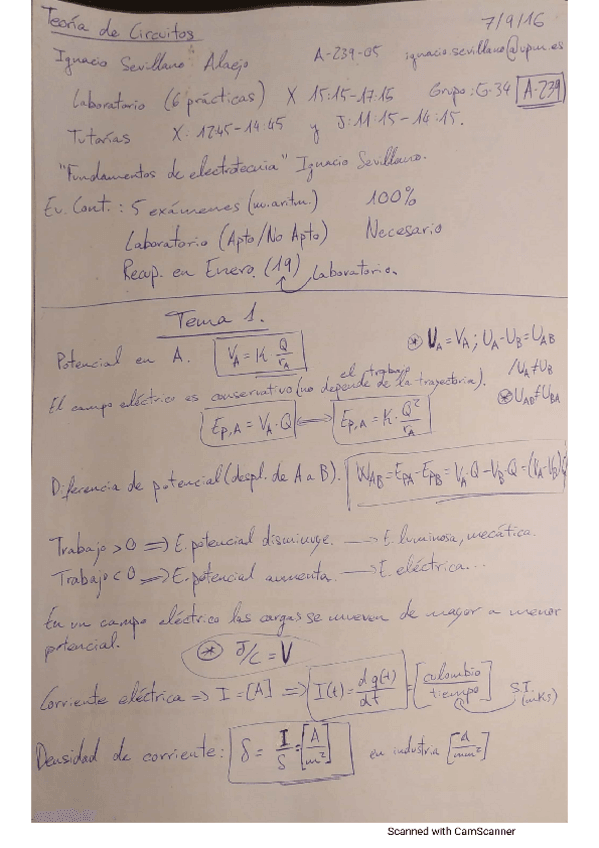 Teoría de Circuitos
7/9/16
Ignacio Sevillano Alaejo A-239-05 ignacio.sevillano@upm.es
Laboratorio (6 prácticas) X 15:15-17:15 Grupo: G-34 A-239
Tutorías X: 12:45-14:45 y J: 11:15-14:15.
"Fundamentos de electrotecnia" Ignacio Sevillano.
Ev. Cont.: 5 exámenes (m.aritm.) 100%
Laboratorio (Apto/No Apto) Necesario
Recup. en Enero. (19) Laboratorio.
Tema 1.
Potencial en A. V_A = K Q/r_A
⊛ U_A = V_A ; U_A-U_B = U_AB
/U_A≠U_B
⊛ U_AB≠U_BA
el trabajo
El campo eléctrico es conservativo (no depende de la trayectoria).
E_P,A = V_A · Q ⟷ E_P,A = K · Q²/r_A
Diferencia de potencial (despl. de A a B). W_AB = E_PA - E_PB = V_A·Q - V_B·Q = (V_A-V_B)Q
Trabajo > 0 ⟹ E. potencial disminuye. ⟶ E. luminosa, mecática.
Trabajo < 0 ⟹ E. potencial aumenta. ⟶ E. eléctrica...
En un campo eléctrico las cargas se mueven de mayor a menor
potencial. ⊛ J/C = V
Corriente eléctrica ⟹ I = [A] ⟹ I(t) = dq(t)/dt = [culombio/tiempo] S.I. (mKs)
Densidad de corriente: δ = I/S = [A/m²] en industria [A/mm²]
Scanned with CamScanner